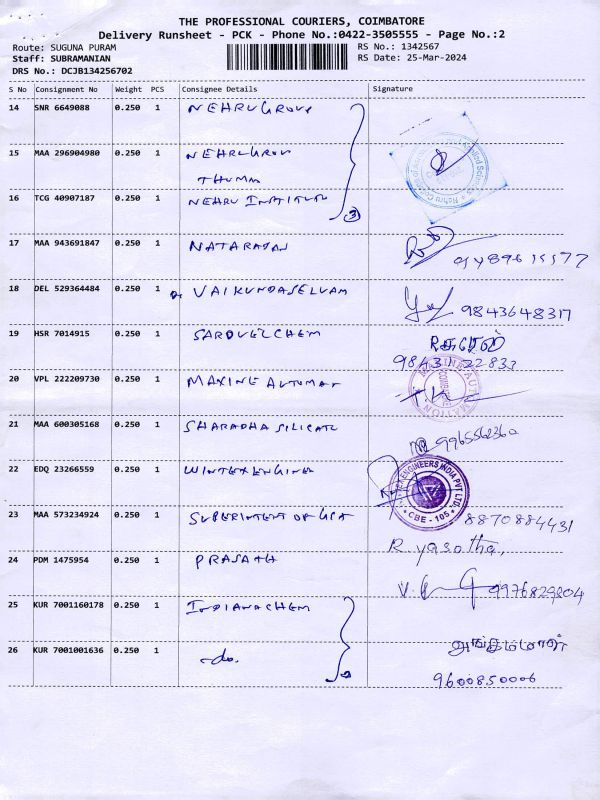 THE PROFESSIONAL COURIERS, COIMBATORE
Delivery Runsheet - PCK - Phone No.:0422-3505555 - Page No.:2
Route: SUGUNA PURAM
RS No.: 1342567
Staff: SUBRAMANIAN
RS Date: 25-Mar-2024
DRS No.: DCJB134256702
S No Consignment No Weight PCS Consignee Details Signature
14 SNR 6649088 0.250 1 NEHRU GROUP
15 MAA 296904980 0.250 1 NEHRU GROUP
THUMM
16 TCG 40907187 0.250 1 NEHRU INSTITUTE
3
17 MAA 943691847 0.250 1 NATARAJAN
18 DEL 529364484 0.250 1 Dr VAIKUNDASELVAM 9843648317
19 HSR 7014915 0.250 1 SAROVELCHEM
9843122833
20 VPL 222209730 0.250 1 MAXINE AUTOMAT
21 MAA 600305168 0.250 1 SHARADHA SILICATE
9965562360
22 EDQ 23266559 0.250 1 WINTEXENGINE
ENGINEERS INDIA PVT LTD.
CBE - 105
23 MAA 573234924 0.250 1 SUPERINTENT OF GST 8870884431
R. yasotha,
24 PDM 1475954 0.250 1 PRASATH
9976829204
25 KUR 7001160178 0.250 1 INDIANACHEM
26 KUR 7001001636 0.250 1 -do. அங்கம்மாள்
9600850006